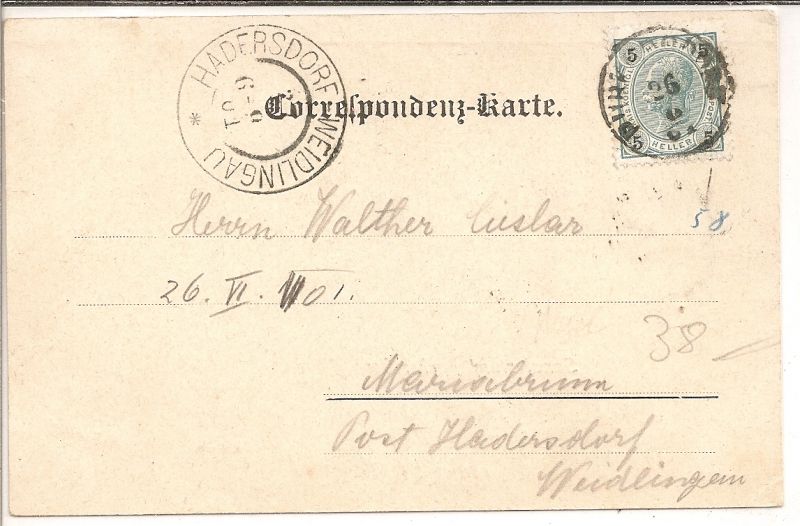 HADERSDORF-WEIDLINGAU *
Correspondenz-Karte.
5 HELLER 5
5 HELLER 5
26
6
Herrn Walther Cieslar
58
26. VI. 01.
38
Mariabrunn
Post Hadersdorf
Weidlingau